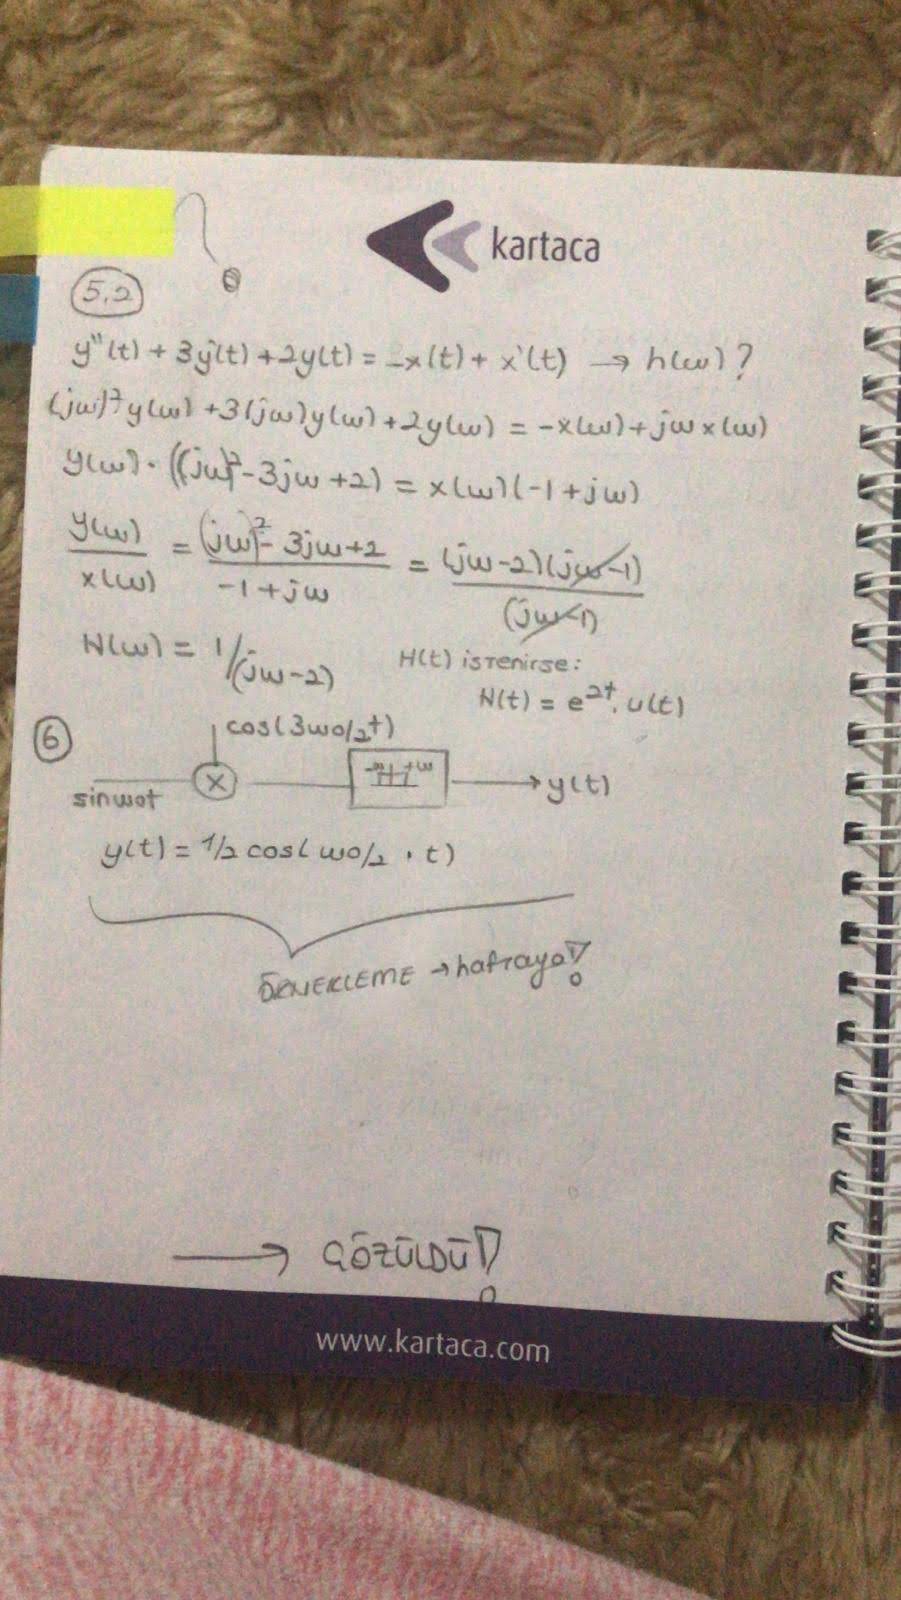 kartaca
5.2
y''(t) + 3y'(t) + 2y(t) = -x(t) + x'(t) → h(ω)?
(jω)²y(ω) + 3(jω)y(ω) + 2y(ω) = -x(ω) + jωx(ω)
y(ω) · ((jω)² - 3jω + 2) = x(ω)(-1 + jω)
y(ω)/x(ω) = (jω)² - 3jω + 2 / -1 + jω = (jω-2)(jω-1) / (jω-1)
H(ω) = 1/(jω-2)
H(t) istenirse:
H(t) = e^2t . u(t)
6
cos(3ω0/2 t)
sinω0t X -ω +ω → y(t)
y(t) = 1/2 cos(ω0/2 . t)
ÖRNEKLEME → haftaya!
→ ÇÖZÜLDÜ!
www.kartaca.com